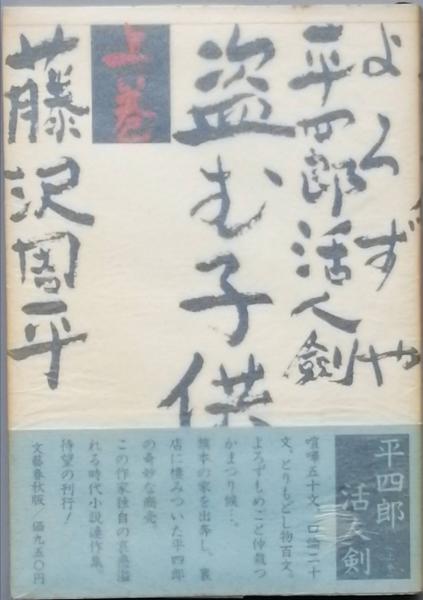 よろずや
平四郎活人剣
盗む子供
上巻
藤沢周平
平四郎
活人剣
喧嘩五十文、口論二十
文、とりもどし物百文。
よろずもめごと仲裁つ
かまつり候…。
旗本の家を出奔し、裏
店に棲みついた平四郎
の奇妙な商売。
この作家独自の哀歓溢
れる時代小説連作集。
待望の刊行！
文藝春秋版／価九五〇円